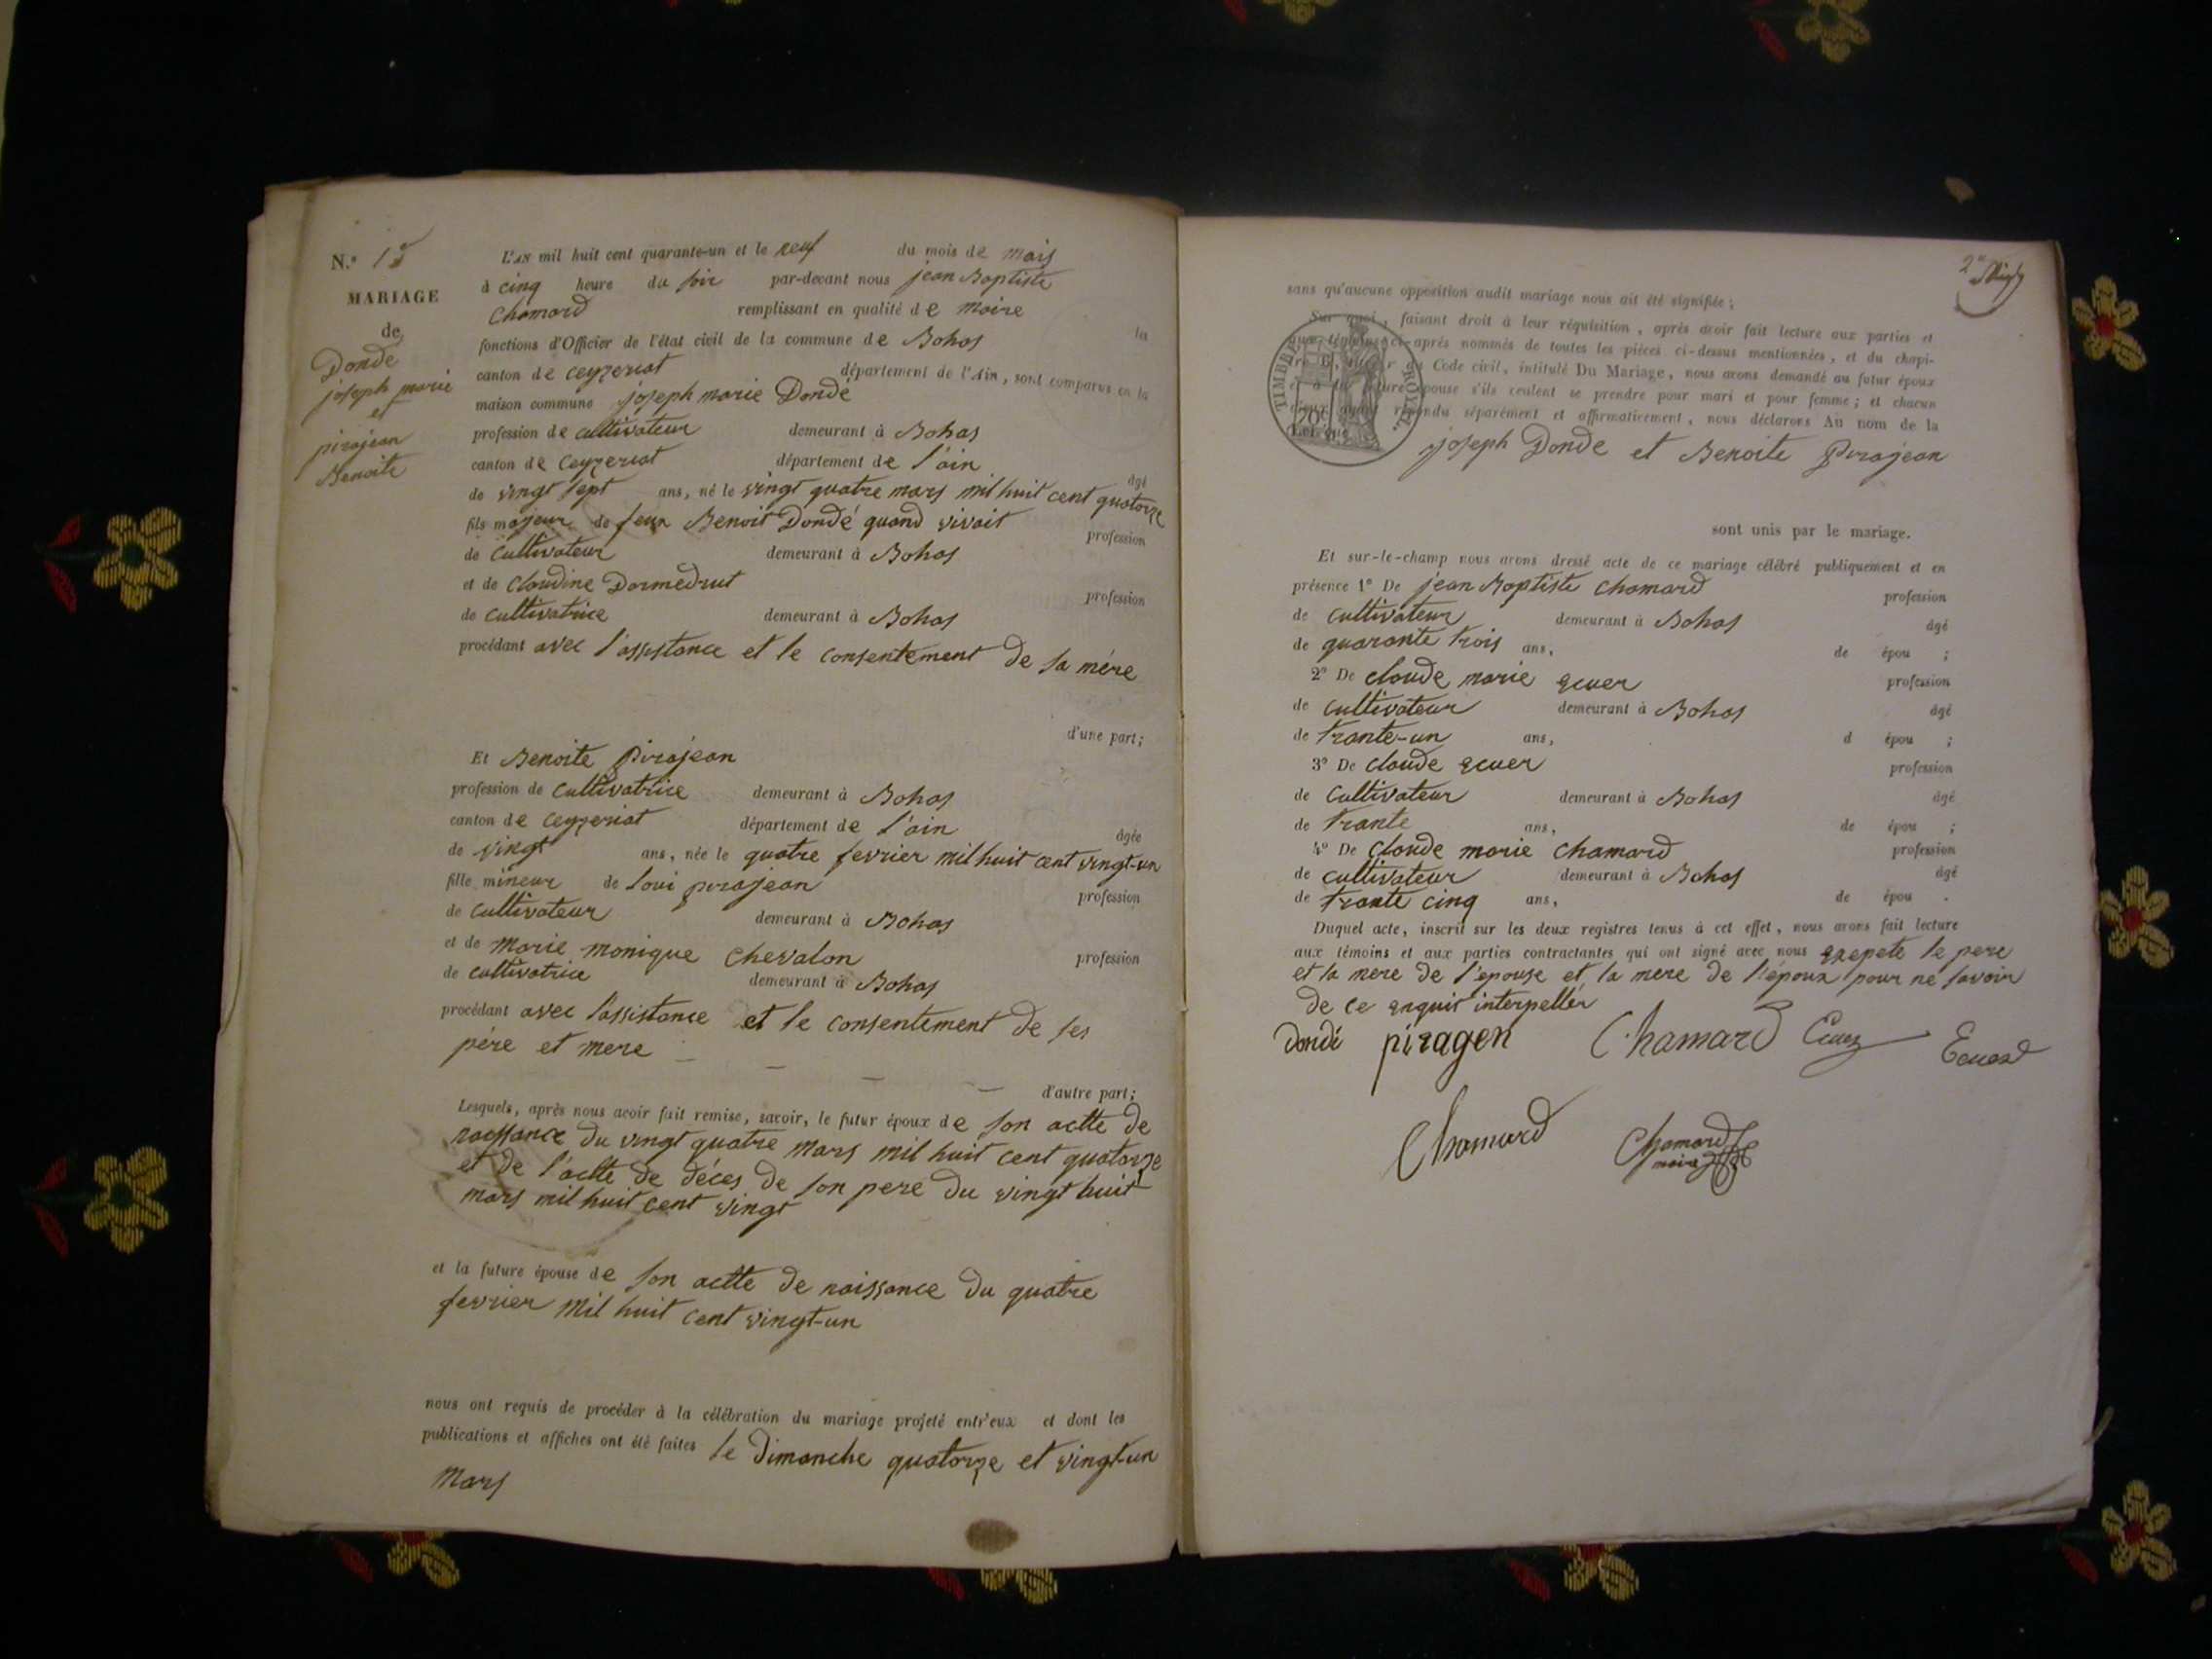 N.° 1
MARIAGE
de
Donde
joseph marie
et
pirajean
Benoite
L'AN mil huit cent quarante-un et le neuf du mois de mais
à cinq heure du soir par-devant nous jean Baptiste
chamard remplissant en qualité de maire les
fonctions d'Officier de l'état civil de la commune de Bohas
canton de ceyzeriat département de l'Ain, sont comparus en la
maison commune joseph marie Dondé
profession de cultivateur demeurant à Bohas
canton de ceyzeriat département de l'ain âgé
de vingt sept ans, né le vingt quatre mars mil huit cent quatorze
fils majeur de feux Benoit Dondé quand vivait profession
de cultivateur demeurant à Bohas
et de claudine Dormedrut profession
de cultivatrice demeurant à Bohas
procédant avec l'assistance et le consentement de sa mére
d'une part;
Et Benoite pirajean
profession de cultivatrice demeurant à Bohas
canton de ceyzeriat département de l'ain âgée
de vingt ans, née le quatre fevrier mil huit cent vingt-un
fille mineur de loui pirajean profession
de cultivateur demeurant à Bohas
et de marie monique chevalon profession
de cultivatrice demeurant à Bohas
procédant avec l'assistance et le consentement de ses
père et mere
d'autre part;
Lesquels, après nous avoir fait remise, savoir, le futur époux de son actte de
naissance du vingt quatre mars mil huit cent quatorze
et de l'actte de déces de son pere du vingt huit
mars mil huit cent vingt
et la future épouse de son actte de naissance du quatre
fevrier mil huit cent vingt-un
nous ont requis de procéder à la célébration du mariage projeté entr'eux et dont les
publications et affiches ont été faites le dimanche quatorze et vingt-un
mars
sans qu'aucune opposition audit mariage nous ait été signifiée;
Sur quoi, faisant droit à leur réquisition, après avoir fait lecture aux parties et
aux témoins ci-après nommés de toutes les pièces ci-dessus mentionnées, et du chapi-
tre du Code civil, intitulé Du Mariage, nous avons demandé au futur époux
et à la future épouse s'ils veulent se prendre pour mari et pour femme; et chacun
d'eux ayant répondu séparément et affirmativement, nous déclarons Au nom de la
TIMBRE ROYAL
joseph Donde et Benoite Pirajean
sont unis par le mariage.
Et sur-le-champ nous avons dressé acte de ce mariage célébré publiquement et en
présence 1° De jean Baptiste chamard profession
de cultivateur demeurant à Bohas âgé
de quarante trois ans, de épou ;
2° De claude marie ecuer profession
de cultivateur demeurant à Bohas âgé
de trante-un ans, d épou ;
3° De claude ecuer profession
de cultivateur demeurant à Bohas âgé
de trante ans, de épou ;
4° De claude marie chamard profession
de cultivateur demeurant à Bohas âgé
de trante cinq ans, de épou .
Duquel acte, inscrit sur les deux registres tenus à cet effet, nous avons fait lecture
aux témoins et aux parties contractantes qui ont signé avec nous exepete le pere
et la mere de l'epouse et la mere de l'époux pour ne savoir
de ce enquis interpellér
Dondé piragen Chamard Ecuer
Chamard Chamard
maire